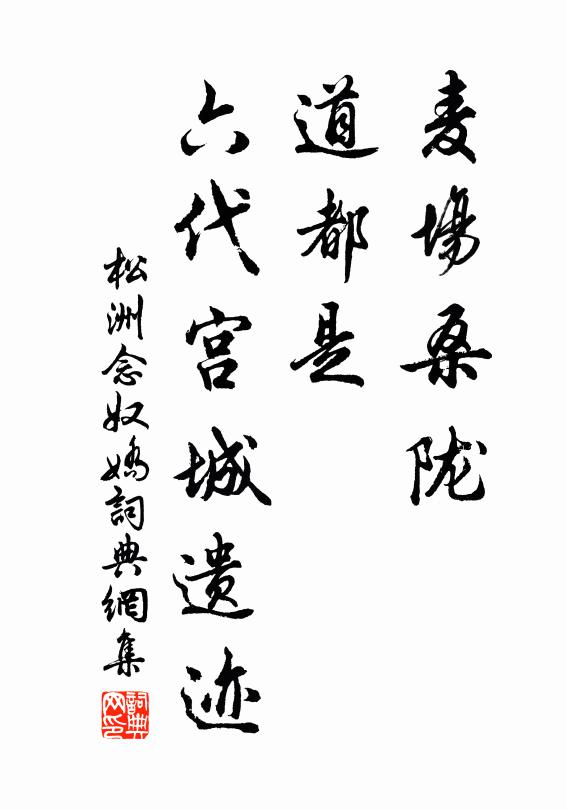 麦場桑陇
道都是
六代宫城遗迹
松洲念奴嬌詞典網集
詞典
网印